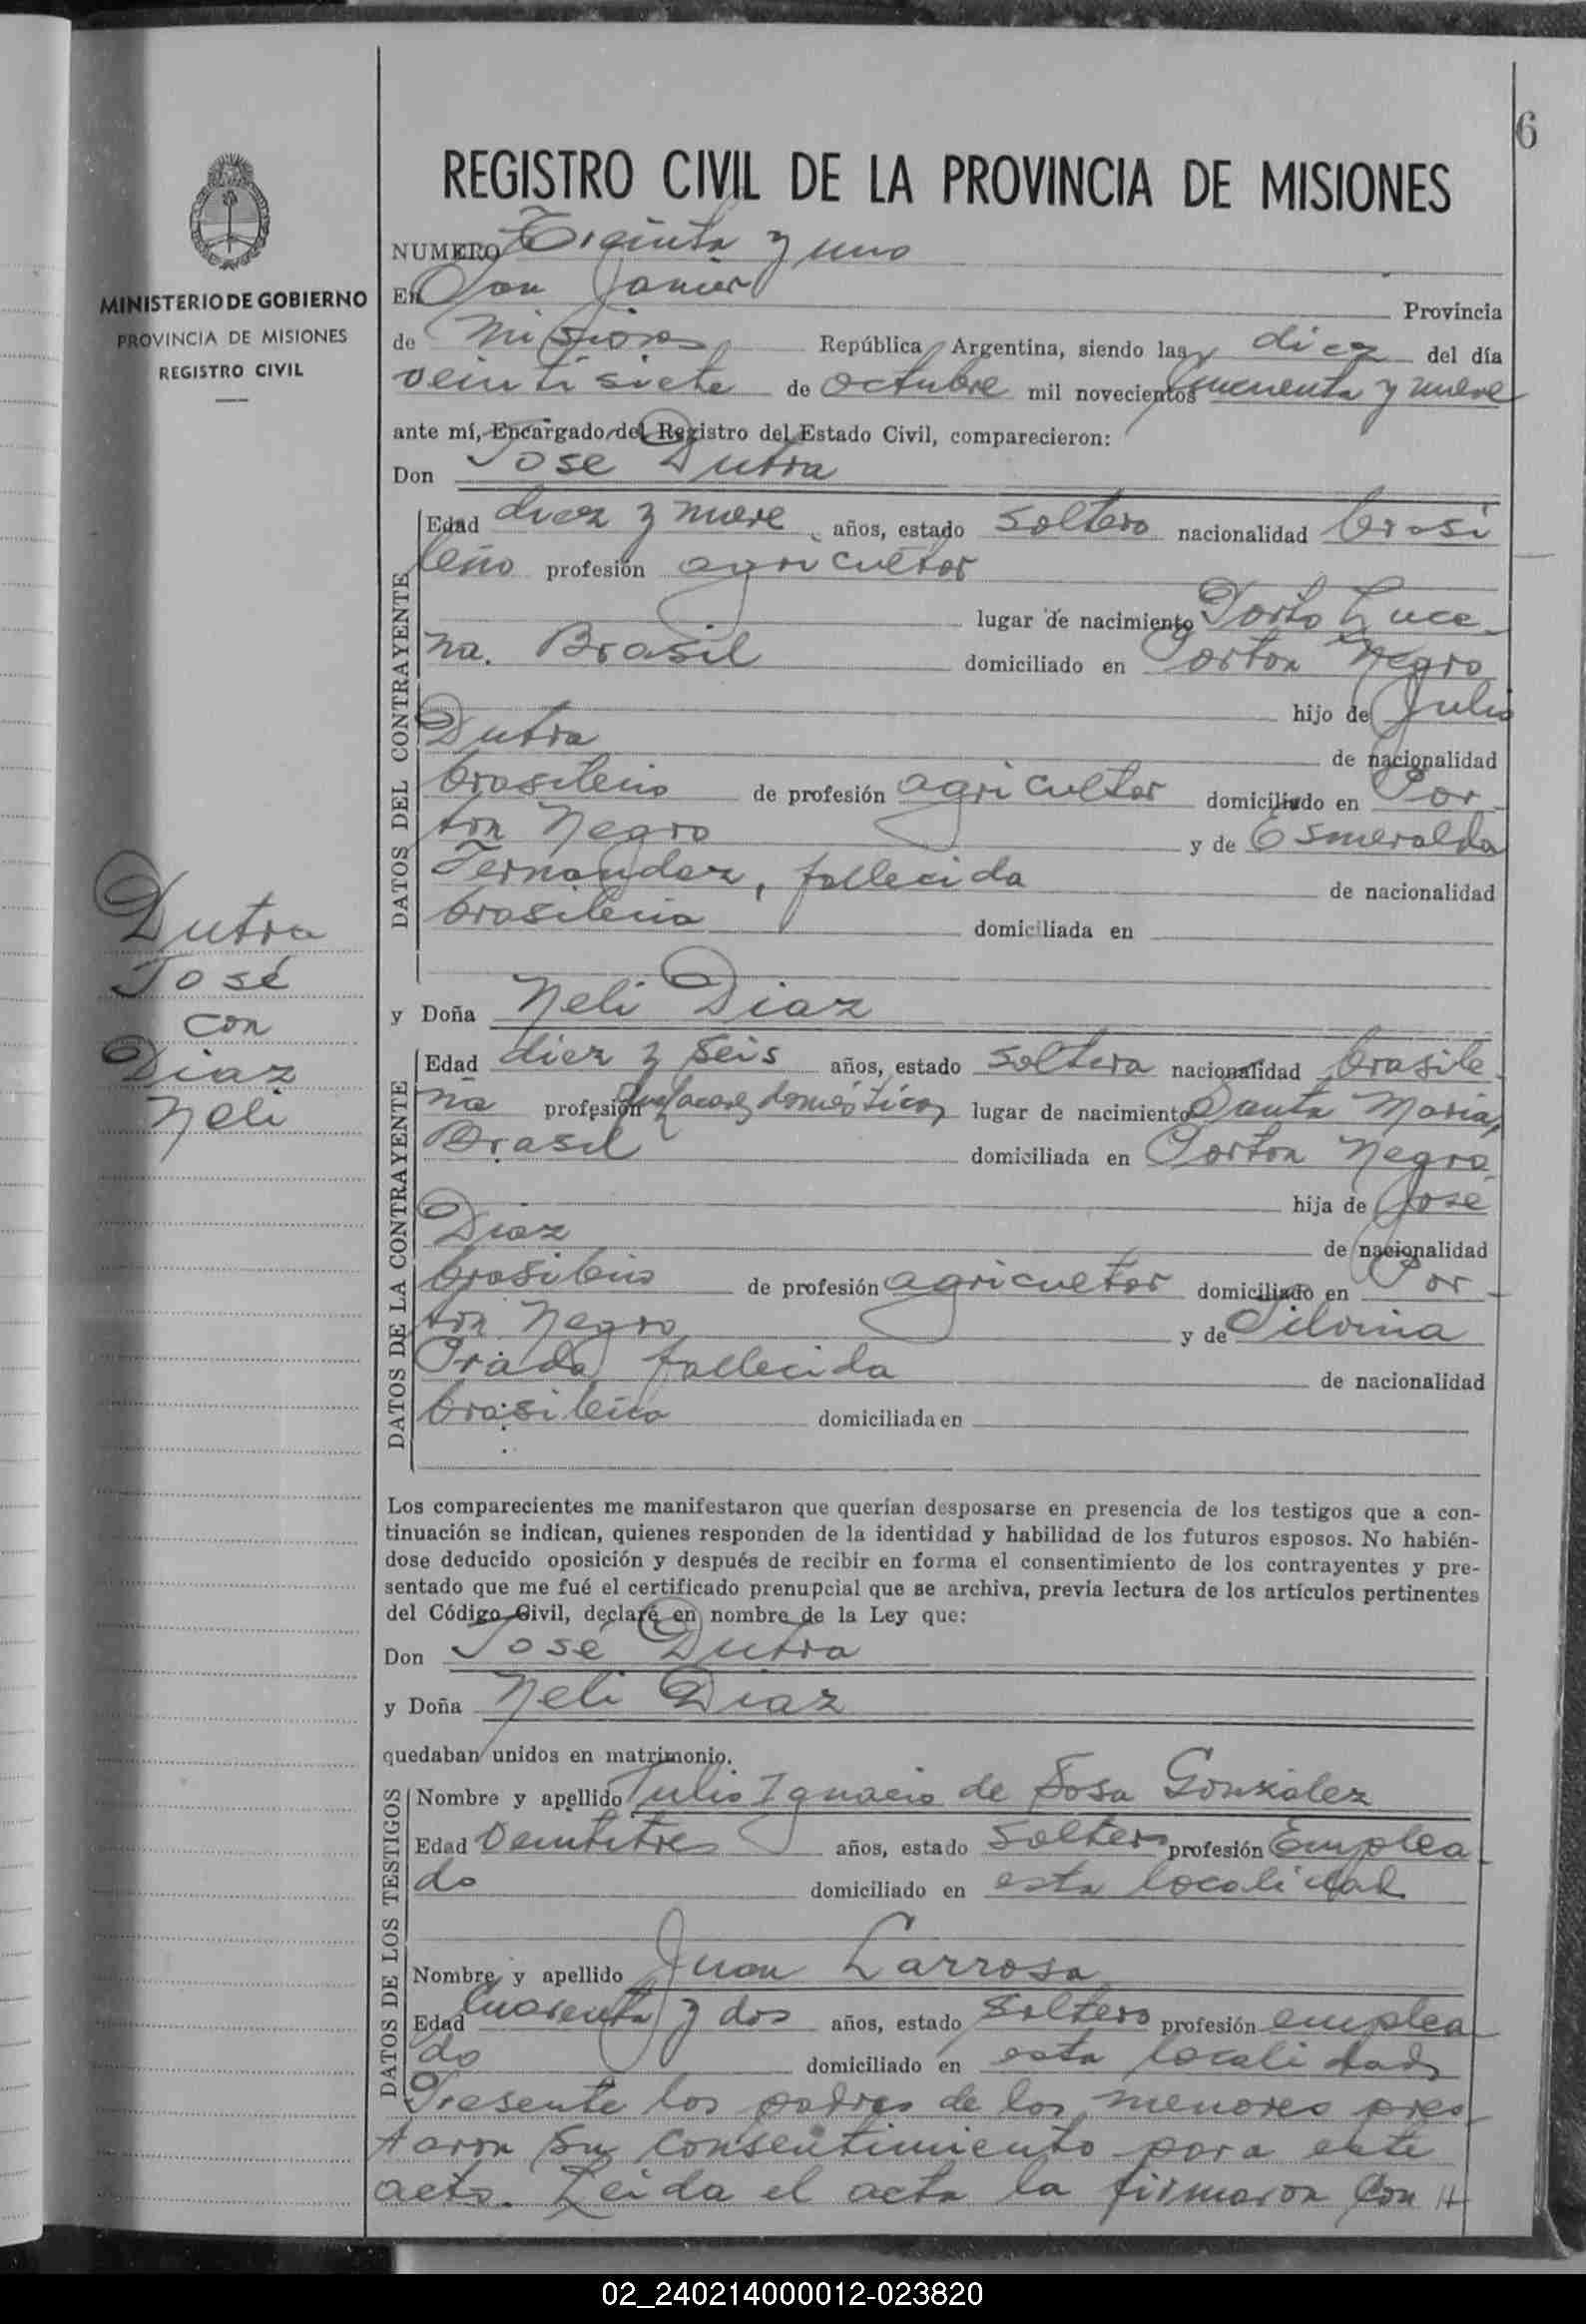 6
REGISTRO CIVIL DE LA PROVINCIA DE MISIONES
MINISTERIO DE GOBIERNO
PROVINCIA DE MISIONES
REGISTRO CIVIL
NUMERO Treinta y uno
En San Javier Provincia
de Misiones República Argentina, siendo las diez del día
veintisiete de octubre mil novecientos cincuenta y nueve
ante mí, Encargado del Registro del Estado Civil, comparecieron:
Don José Dutra
DATOS DEL CONTRAYENTE
Edad diez y nueve años, estado soltero nacionalidad brasi
leño profesión agricultor
lugar de nacimiento Porto Luce-
na. Brasil domiciliado en Porton Negro
hijo de Julio
Dutra de nacionalidad
brasileño de profesión agricultor domiciliado en Por-
ton Negro y de Esmeralda
Fernandez, fallecida de nacionalidad
brasileña domiciliada en
Dutra
José
con
Diaz
Neli
y Doña Neli Diaz
DATOS DE LA CONTRAYENTE
Edad diez y seis años, estado soltera nacionalidad brasile-
ña profesión quehaceres domésticos lugar de nacimiento Santa Maria,
Brasil domiciliada en Porton Negro
hija de José
Diaz de nacionalidad
brasileño de profesión agricultor domiciliado en Por-
ton Negro y de Silvina
Prada fallecida de nacionalidad
brasileña domiciliada en
Los comparecientes me manifestaron que querían desposarse en presencia de los testigos que a con-
tinuación se indican, quienes responden de la identidad y habilidad de los futuros esposos. No habién-
dose deducido oposición y después de recibir en forma el consentimiento de los contrayentes y pre-
sentado que me fué el certificado prenupcial que se archiva, previa lectura de los artículos pertinentes
del Código Civil, declaré en nombre de la Ley que:
Don José Dutra
y Doña Neli Diaz
quedaban unidos en matrimonio.
DATOS DE LOS TESTIGOS
Nombre y apellido Julio Ignacio de Sosa González
Edad veintitres años, estado soltero profesión Emplea-
do domiciliado en esta localidad
Nombre y apellido Juan Larrosa
Edad cuarenta y dos años, estado soltero profesión emplea-
do domiciliado en esta localidad
Presente los padres de los menores pres-
taron su consentimiento para este
acto. Leida el acta la firmaron con
02_240214000012-023820